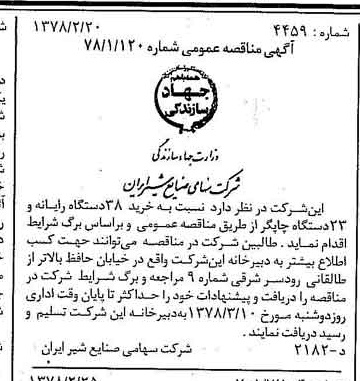 شماره: ۴۴۵۹ ۱۳۷۸/۲/۲۰
آگهی مناقصه عمومی شماره ۷۸/۱/۱۲۰
همه باهم
جهاد
سازندگی
وزارت جهاد سازندگی
شرکت سهامی صنایع شیر ایران
این‌شرکت در نظر دارد نسبت به خرید ۳۸دستگاه رایانه و
۲۳دستگاه چاپگر از طریق مناقصه عمومی و براساس برگ شرایط
اقدام نماید. طالبین شرکت در مناقصه می‌توانند جهت کسب
اطلاع بیشتر به دبیرخانه این‌شرکت واقع در خیابان حافظ بالاتر از
طالقانی رودسر شرقی شماره ۹ مراجعه و برگ شرایط شرکت در
مناقصه را دریافت و پیشنهادات خود را حداکثر تا پایان وقت اداری
روزدوشنبه مورخ ۱۳۷۸/۳/۱۰به‌دبیرخانه این شرکت تسلیم و
رسید دریافت نمایند.
د-۲۱۸۲ شرکت سهامی صنایع شیر ایران
۱۳۷۸/۲/۲۵